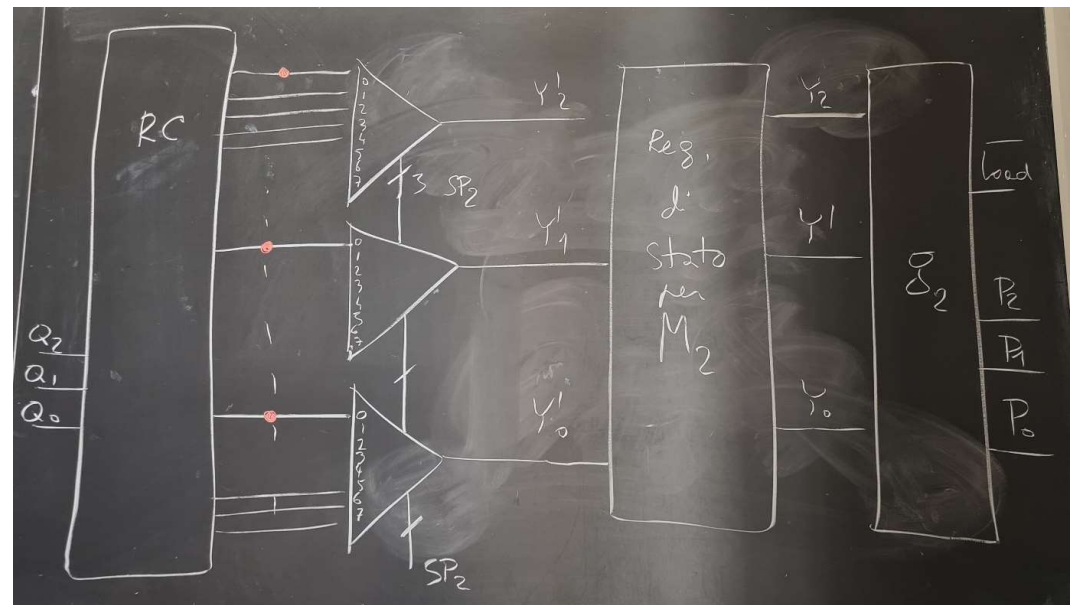 RC
Q2
Q1
Q0
0
1
2
3
4
5
6
7
3 SP2
0
1
2
3
4
5
6
7
0
1
2
3
4
5
6
7
SP2
Y'2
Y'1
Y'0
Reg.
di
Stato
per
M2
Y2
Y'
Y0
g2
Load
P2
P1
P0